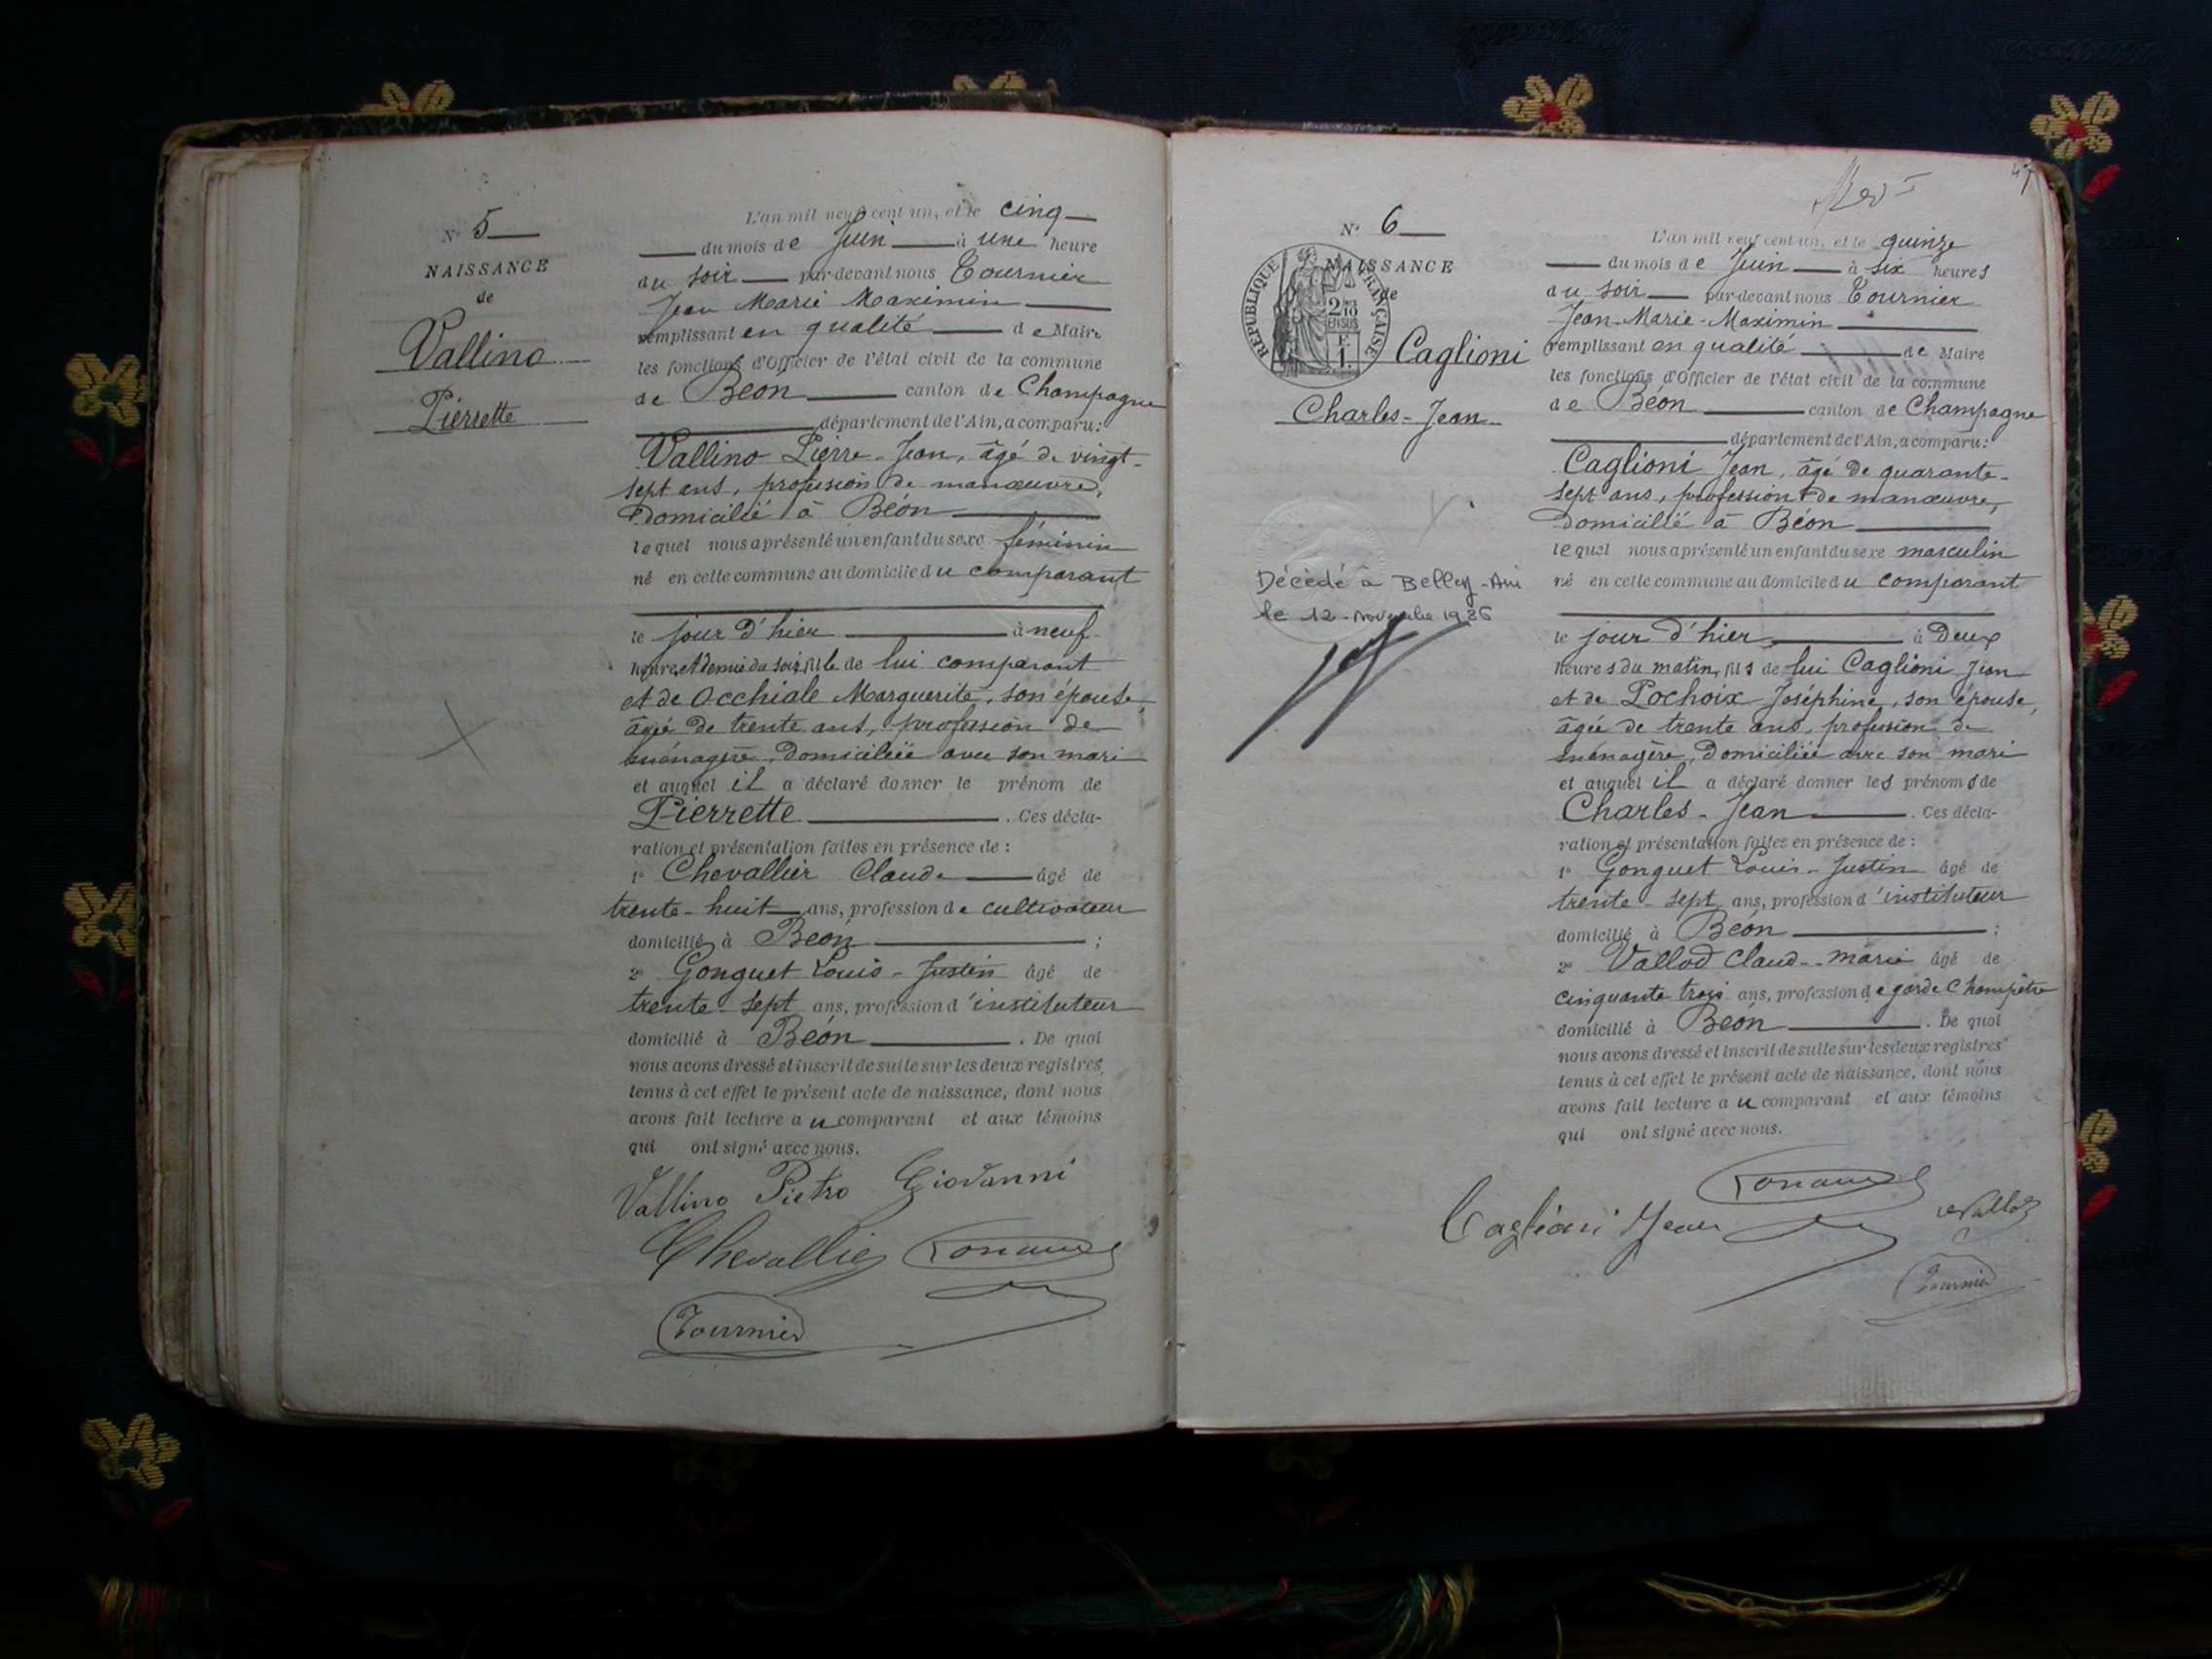 N° 5
NAISSANCE
de
Vallino
Pierrette
L'an mil neuf cent un, et le cinq
du mois de Juin à une heure
du soir par-devant nous Tournier
Jean Marie Maximin
remplissant en qualité de Maire
les fonctions d'Officier de l'état civil de la commune
de Béon canton de Champagne
département de l'Ain, a comparu:
Vallino Pierre-Jean, âgé de vingt-
sept ans, profession de manœuvre,
domicilié à Béon
lequel nous a présenté un enfant du sexe féminin
né en cette commune au domicile du comparant
le jour d'hier à neuf
heures et demie du soir, fille de lui comparant
et de Occhiale Marguerite, son épouse,
âgée de trente ans, profession de
ménagère, domiciliée avec son mari
et auquel il a déclaré donner le prénom de
Pierrette. Ces décla-
ration et présentation faites en présence de :
1° Chevallier Claude âgé de
trente-huit ans, profession de cultivateur
domicilié à Béon ;
2° Gonguet Louis-Justin âgé de
trente-sept ans, profession d'instituteur
domicilié à Béon. De quoi
nous avons dressé et inscrit de suite sur les deux registres
tenus à cet effet le présent acte de naissance, dont nous
avons fait lecture au comparant et aux témoins
qui ont signé avec nous.
Vallino Pietro Giovanni
Chevallier
Tournier
47
N° 6
NAISSANCE
de
RÉPUBLIQUE FRANÇAISE
2/10
EN SUS
F.
1.
Caglioni
Charles-Jean
Décédé à Belley-Ain
le 12-novembre 1986
L'an mil neuf cent un, et le quinze
du mois de Juin à six heures
du soir par-devant nous Tournier
Jean-Marie-Maximin
remplissant en qualité de Maire
les fonctions d'Officier de l'état civil de la commune
de Béon canton de Champagne
département de l'Ain, a comparu:
Caglioni Jean, âgé de quarante-
sept ans, profession de manœuvre,
domicilié à Béon
lequel nous a présenté un enfant du sexe masculin
né en cette commune au domicile du comparant
le jour d'hier à Deux
heures du matin, fils de lui Caglioni Jean
et de Pochoix Joséphine, son épouse,
âgée de trente ans, profession de
ménagère, domiciliée avec son mari
et auquel il a déclaré donner les prénoms de
Charles-Jean. Ces décla-
ration et présentation faites en présence de :
1° Gonguet Louis-Justin âgé de
trente-sept ans, profession d'instituteur
domicilié à Béon ;
2° Vallod Claud-marie âgé de
cinquante trois ans, profession de garde Champêtre
domicilié à Béon. De quoi
nous avons dressé et inscrit de suite sur les deux registres
tenus à cet effet le présent acte de naissance, dont nous
avons fait lecture au comparant et aux témoins
qui ont signé avec nous.
Caglioni Jean
Vallod
Tournier